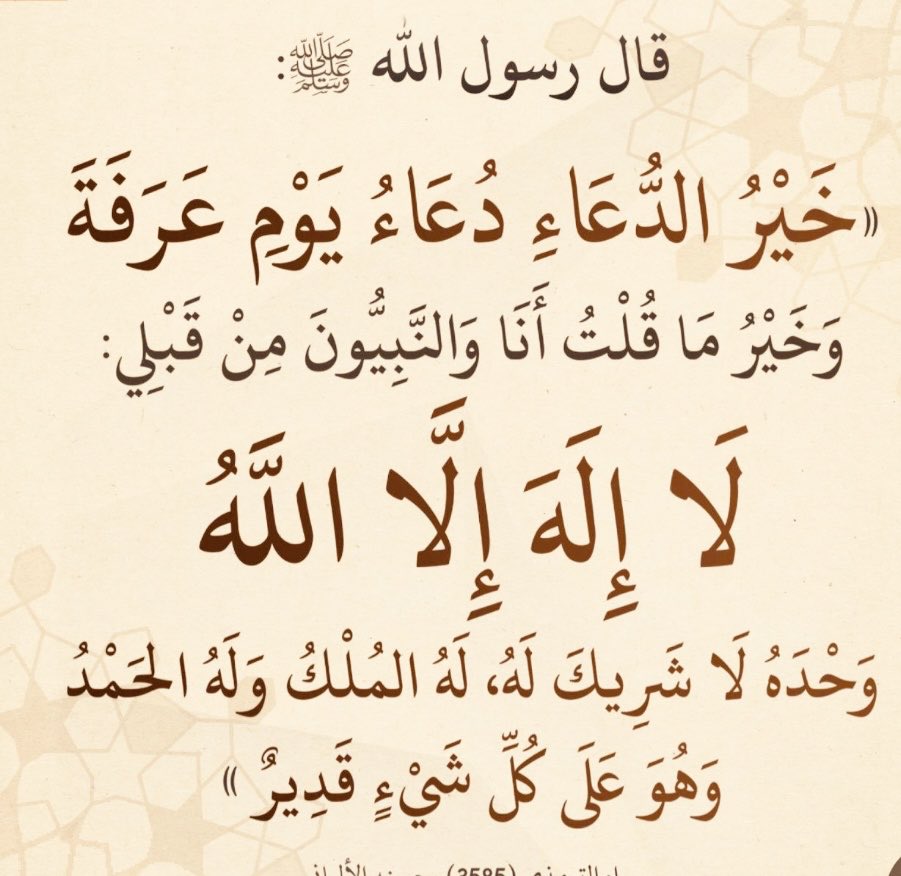 قال رسول الله ﷺ:
«خَيْرُ الدُّعَاءِ دُعَاءُ يَوْمِ عَرَفَةَ
وَخَيْرُ مَا قُلْتُ أَنَا وَالنَّبِيُّونَ مِنْ قَبْلِي:
لَا إِلَهَ إِلَّا اللَّهُ
وَحْدَهُ لَا شَرِيكَ لَهُ، لَهُ المُلْكُ وَلَهُ الحَمْدُ
وَهُوَ عَلَى كُلِّ شَيْءٍ قَدِيرٌ»
(3585)